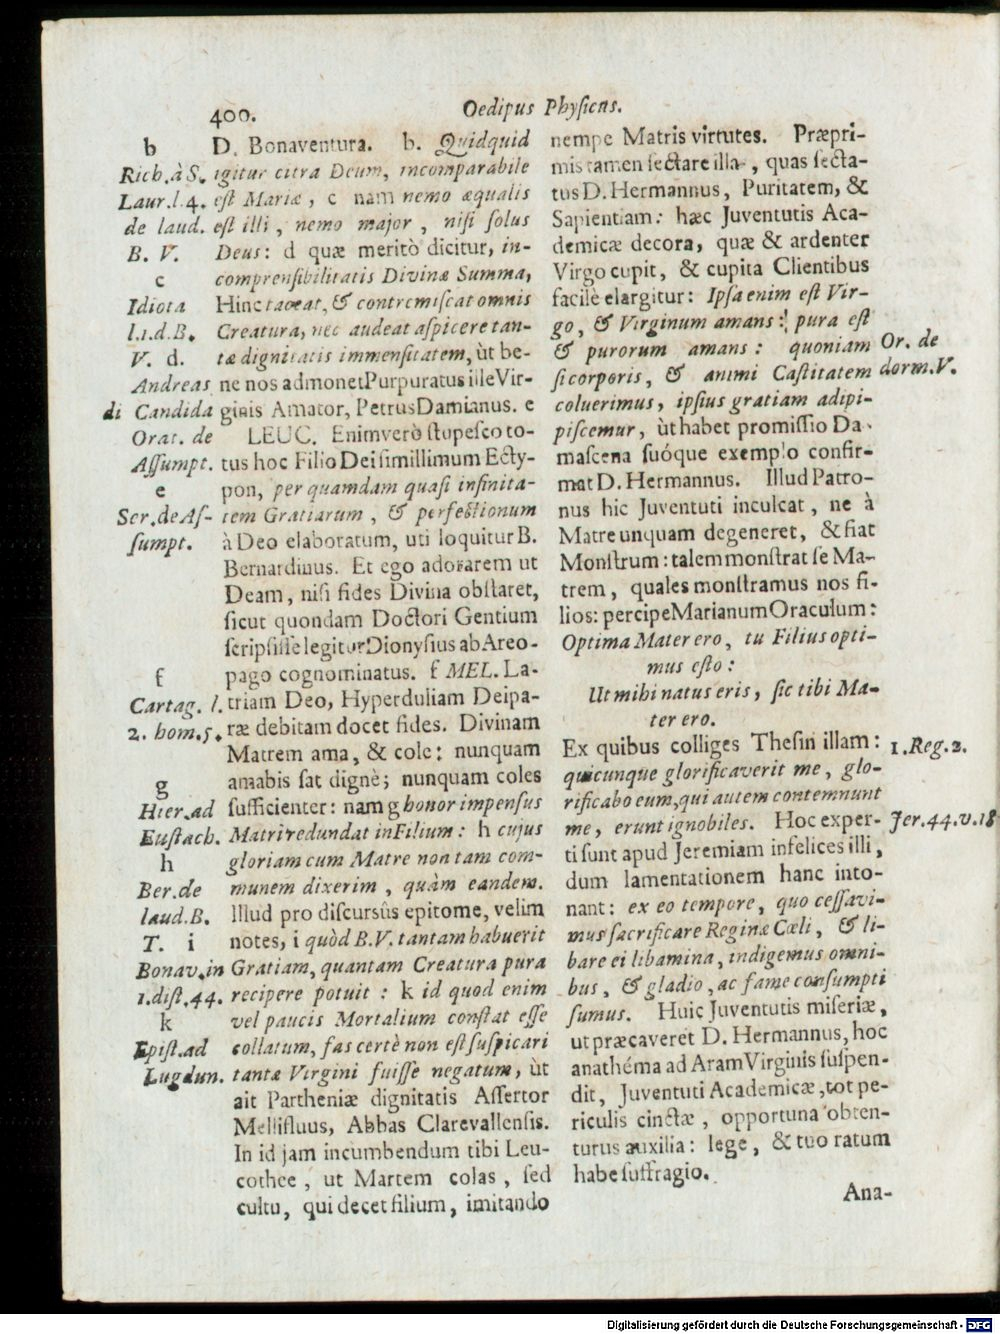 400.
Oedipus Physicus.
b
Rich. à S.
Laur. l. 4.
de laud.
B. V.
c
Idiota
l. 1. d. B.
V. d.
Andreas
di Candida
Orat. de
Assumpt.
e
Ser. de As-
sumpt.
f
Cartag. l.
2. hom. 5.
g
Hier. ad
Eustach.
h
Ber. de
laud. B.
T. i
Bonav. in
1. dist. 44.
k
Epist. ad
Lugdun.
D. Bonaventura. b. Quidquid
igitur citra Deum, incomparabile
est Mariæ, c nam nemo æqualis
est illi, nemo major, nisi solus
Deus: d quæ meritò dicitur, in-
comprensibilitatis Divinæ Summa,
Hinc taceat, & contremiscat omnis
Creatura, nec audeat aspicere tan-
tæ dignitatis immensitatem, ùt be-
ne nos admonet Purpuratus ille Vir-
ginis Amator, Petrus Damianus. e
LEUC. Enimverò stupesco to-
tus hoc Filio Dei simillimum Ecty-
pon, per quamdam quasi infinita-
tem Gratiarum, & perfectionum
à Deo elaboratum, uti loquitur B.
Bernardinus. Et ego adorarem ut
Deam, nisi fides Divina obstaret,
sicut quondam Doctori Gentium
scripsisse legitur Dionysius ab Areo-
pago cognominatus. f MEL. La-
triam Deo, Hyperduliam Deipa-
ræ debitam docet fides. Divinam
Matrem ama, & cole: nunquam
amabis sat dignè; nunquam coles
sufficienter: nam g honor impensus
Matri redundat in Filium: h cujus
gloriam cum Matre non tam com-
munem dixerim, quàm eandem.
Illud pro discursûs epitome, velim
notes, i quòd B. V. tantam habuerit
Gratiam, quantam Creatura pura
recipere potuit: k id quod enim
vel paucis Mortalium constat esse
collatum, fas certè non est suspicari
tantæ Virgini fuisse negatum, ùt
ait Partheniæ dignitatis Assertor
Mellifluus, Abbas Clarevallensis.
In id jam incumbendum tibi Leu-
cothee, ut Martem colas, sed
cultu, qui decet filium, imitando
nempe Matris virtutes. Præpri-
mis tamen sectare illa, quas secta-
tus D. Hermannus, Puritatem, &
Sapientiam: hæc Juventutis Aca-
demicæ decora, quæ & ardenter
Virgo cupit, & cupita Clientibus
facilè elargitur: Ipsa enim est Vir-
go, & Virginum amans: pura est
& purorum amans: quoniam
si corporis, & animi Castitatem
coluerimus, ipsius gratiam adipi-
piscemur, ùt habet promissio Da-
mascena suóque exemplo confir-
mat D. Hermannus. Illud Patro-
nus hic Juventuti inculcat, ne à
Matre unquam degeneret, & fiat
Monstrum: talem monstrat se Ma-
trem, quales monstramus nos fi-
lios: percipe Marianum Oraculum:
Optima Mater ero, tu Filius opti-
mus esto:
Ut mihi natus eris, sic tibi Ma-
ter ero.
Ex quibus colliges Thesin illam:
quicunque glorificaverit me, glo-
rificabo eum, qui autem contemnunt
me, erunt ignobiles. Hoc exper-
ti sunt apud Jeremiam infelices illi,
dum lamentationem hanc into-
nant: ex eo tempore, quo cessavi-
mus sacrificare Reginæ Cæli, & li-
bare ei libamina, indigemus omni-
bus, & gladio, ac fame consumpti
sumus. Huic Juventutis miseriæ,
ut præcaveret D. Hermannus, hoc
anathéma ad Aram Virginis suspen-
dit, Juventuti Academicæ, tot pe-
riculis cinctæ, opportuna obten-
turus auxilia: lege, & tuo ratum
habe suffragio.
Ana-
Or. de
dorm. V.
1. Reg. 2.
Jer. 44. v. 18
Digitalisierung gefördert durch die Deutsche Forschungsgemeinschaft - DFG